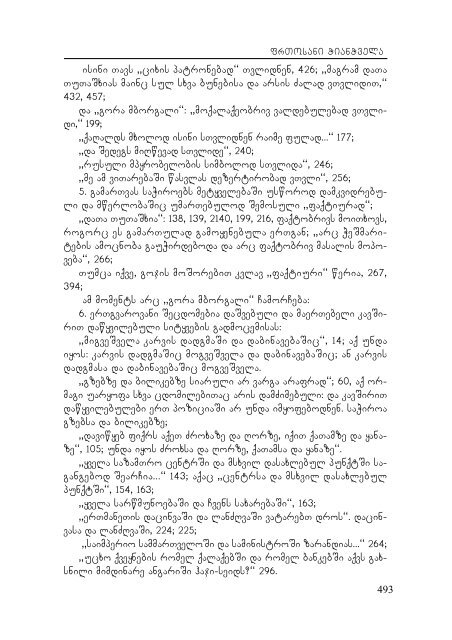 ფრთოსანი ჭიანჭველა
ისინი თავს „ციხის პატრონებად“ თვლიდნენ, 426; „მაგრამ დათა
თუთაშხიას მაინც სულ სხვა ბუნებისა და არსის ძალად ვთვლიდით,“
432, 457;
და „გორა მბორგალი“: „მოქალაქეობრივ ვალდებულებად ვთვლი-
დი,“ 199;
„ქაღალდს მხოლოდ ისინი სთვლიდნენ რაიმე ფულად...“ 177;
„და შედეგს მიღწევად სთვლიდე“, 240;
„რუსული მპყრობელობის სიმბოლოდ სთვლიდა“, 246;
„მე ამ ვითარებაში წასვლას დეზერტირობად ვთვლი“, 256;
5. გამართვას საჭიროებს მეტყველებაში უსწოროდ დამკვიდრებუ-
ლი და მწერლობაშიც უმართებულოდ შემოსული „ფაქტიურად“;
„დათა თუთაშხია“: 138, 139, 2140, 199, 216, ფაქტობრივს მოითხოვს,
როგორც ეს გამართულად გამოყენებულა ერთგან; „არც ჭეშმარი-
ტების ამოცნობა გაუჭირდებოდა და არც ფაქტობრივ მასალის მოპო-
ვება“, 266;
თუმცა იქვე, გოჯის მოშორებით კვლავ „ფაქტიური“ წერია, 267,
394;
ამ მომენტს არც „გორა მბორგალი“ ჩამორჩება:
6. ერთგვაროვანი შეცდომებია დაშვებული და მაერთებელი კავში-
რით დაწყვილებული სიტყვების გადმოცემისას:
„მიგვეშველა კარვის დადგმაში და დაბინავებაშიც“, 14; აქ უნდა
იყოს: კარვის დადგმაშიც მოგვეშველა და დაბინავებაშიც; ან კარვის
დადგმასა და დაბინავებაშიც მოგვეშველა.
„გზებზე და ბილიკებზე სიარული არ ვარგა არაფრად“; 60, აქ ორ-
მაგი უარყოფა სხვა ცდომილებითაც არის დამძიმებული: და კავშირით
დაწყვილებულები ერთ პოზიციაში არ უნდა იმყოფებოდნენ. საჭიროა
გზებსა და ბილიკებზე;
„დავიწყებ ფიქრს აქეთ ძროხაზე და ღორზე, იქით ქათამზე და ყანა-
ზე“, 105; უნდა იყოს ძროხსა და ღორზე, ქათამსა და ყანაზე“.
„ყველა საზამთრო ცენტრში და მსხვილ დასახლებულ პუნქტში სა-
განგებოდ შეარჩია...“ 143; აქაც „ცენტრსა და მსხვილ დასახლებულ
პუნქტში“, 154, 163;
„ყველა სარწმუნოებაში და ჩვენს სახარებაში“, 163;
„ერთმანეთის დაცინვაში და ლანძღვაში ვატარებთ დროს“. დაცინ-
ვასა და ლანძღვაში, 224; 225;
„საიმპერიო სამმართველოში და სამინისტროში ზარანდიას...“ 264;
„უცხო ქვეყნების რომელ ქალაქებში და რომელ ბანკებში აქვს გახ-
სნილი მიმდინარე ანგარიში ჰაჯი-სეიდს?“ 296.
493